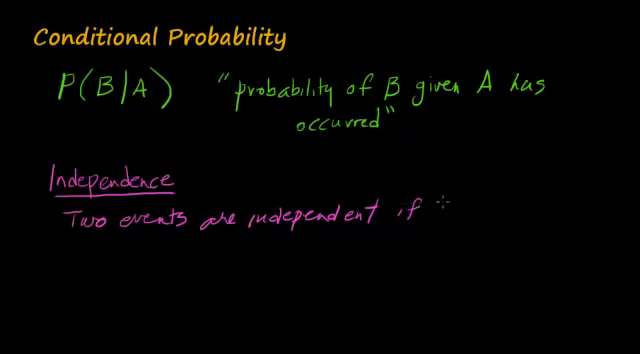 Conditional Probability
P(B|A) "probability of B given A has
occurred"
Independence
Two events are independent if